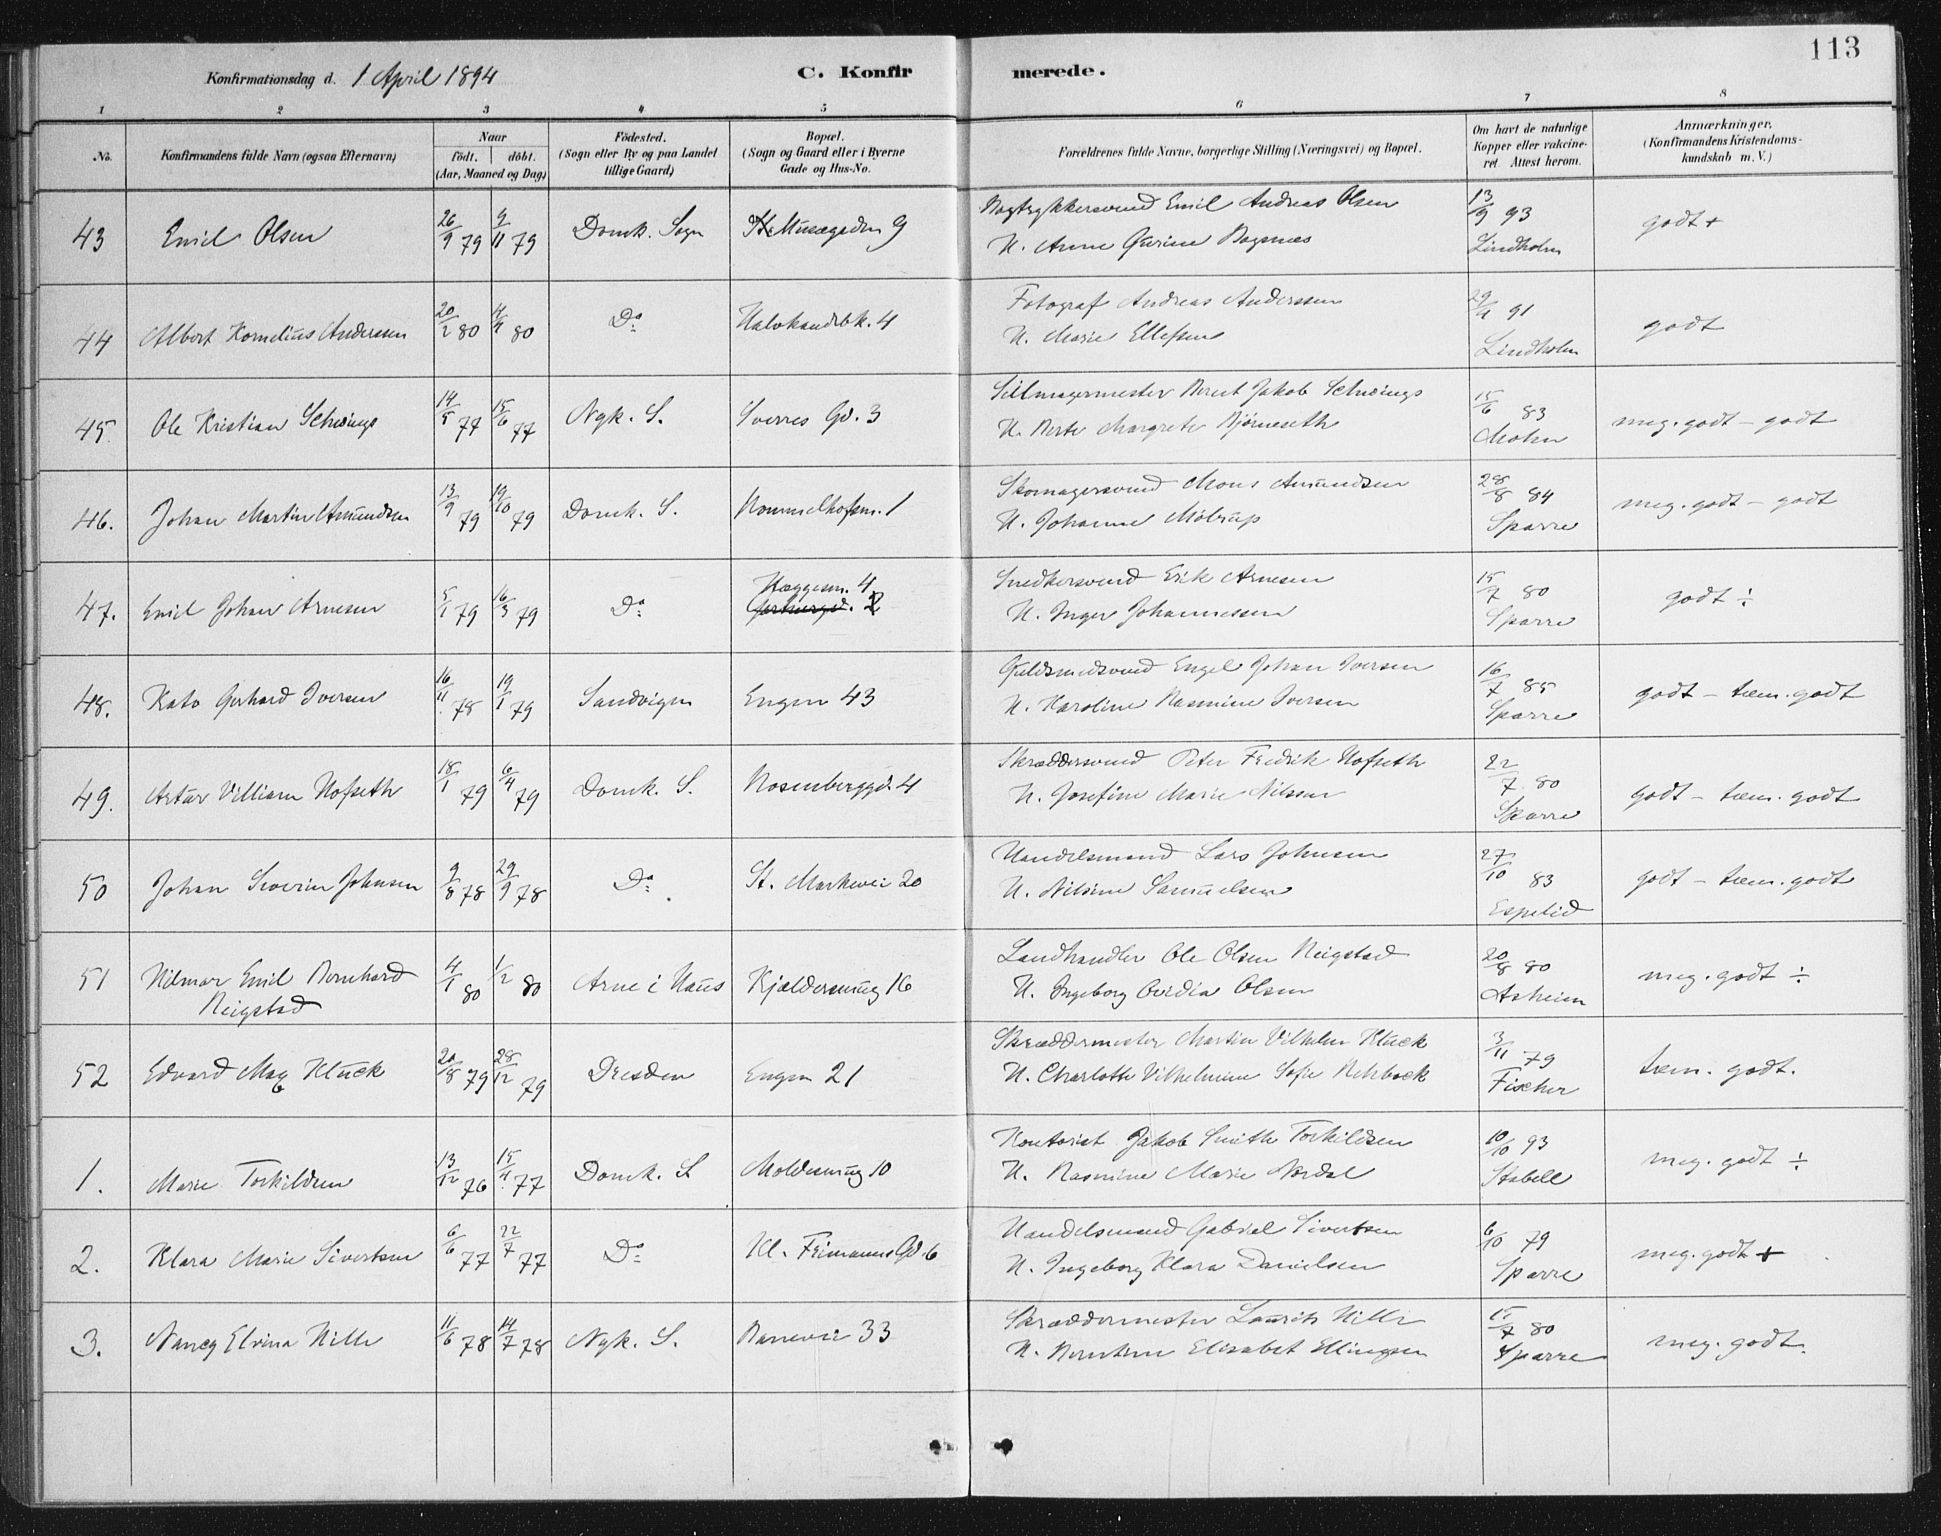 113
Konfirmationsdag d. 1 April 1894
C. Konfirmerede.
1 2 3 4 5 6 7 8
No. Konfirmandens fulde Navn (ogsaa Efternavn) Naar födt. döbt. (Aar, Maaned og Dag) Födested. (Sogn eller By og paa Landet tillige Gaard) Bopæl. (Sogn og Gaard eller i Byerne Gade og Hus-No. Forældrenes fulde Navne, borgerlige Stilling (Næringsvei) og Bopæl. Om havt de naturlige Kopper eller vakcineret. Attest herom. Anmærkninger, (Konfirmandens Kristendomskundskab m. V.)
43 Emil Olsen 26/9 79 9/11 79 Domk. Sogn St. Musægaden 9 Bogtrykkersvend Emil Andreas Olsen 13/9 93 godt +
H. Anne Gurine Lindholm
44 Albert Kornelius Anderssen 20/2 80 4/4 80 Do Halvkandebk. 4 Fotograf Andreas Anderssen 29/4 91 godt
H. Marie Ellefsen Lindholm
45. Ole Kristian 14/5 77 15/6 77 Nyk. S. Sverres Gd. 3 Berent Jakob 15/6 83 meg. godt – godt
H. Berte Margrete Bjørneseth Mohn
46. Johan Martin Amundsen 13/9 79 19/10 79 Domk. S. 1 Skomagersvend Mons Amundsen 28/8 84 meg. godt – godt
H. Johanne Møtrup Sparre
47. Emil Johan Arnesen 5/1 79 16/3 79 Do Hæggesm. 4 Snedkersvend Erik Arnesen 15/7 80 godt ÷
H. Inger Johannessen Sparre
48. Kato Gerhard Iversen 16/11 78 19/1 79 Sandvigen Engen 43 Guldsmedsvend Engel Johan Iversen 16/7 85 godt – tem. godt
H. Karoline Rasmine Iversen Sparre
49. Artur Villiam Hofseth 18/1 79 6/4 79 Domk. S. Rosenberggd. 4 Skræddersvend Peter Fredrik Hofseth 22/7 80 godt – tem. godt
H. Josefine Marie Nilssen Sparre
50 Johan Severin Johnsen 9/8 78 29/9 78 Do St. Markevei 20 Handelsmand Lars Johnsen 27/10 83 godt – tem. godt
H. Nilsine Samuelsen Espelid
51 Hilmar Emil Bernhard 4/1 80 1/2 80 Arne i Haus Kjeldersmug 16 Landhandler Ole Olsen Reigstad 20/8 80 meg. godt ÷
Reigstad H. Ingeborg Ovidia Olsen Asheim
52 Edvard Max Kluck 20/8 79 28/12 79 Dresden Engen 21 Skræddermester Martin Vilhelm Kluck 3/11 79 tem. godt.
H. Charlotte Vilhelmine Sofie Rehbock Fischer
1. Marie Torkildsen 13/12 76 15/4 77 Domk. S Moldesmug 10 Kontorist Jakob Smith Torkildsen 10/10 93 meg. godt ÷
H. Rasmine Marie Nordal Stabell
2. Klara Marie Sivertsen 6/6 77 22/7 77 Do Kl. Frimanns Gd. 6 Handelsmand Gabriel Sivertsen 6/10 79 meg. godt +
H. Ingeborg Klara Danielsen Sparre
3. Nancy Elvina Hille 11/6 78 14/7 78 Nyk. S. Banevei 33 Skræddermester Laurits Hille 15/7 80 meg. godt.
H. Berntine Elisabet Ellingsen Sparre